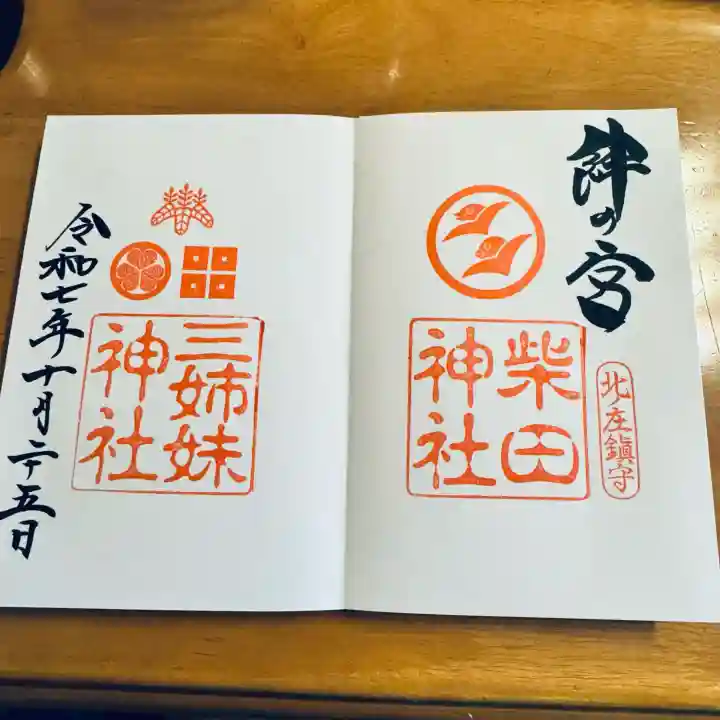 絆の宮
北庄鎮守
柴田
神社
三姉妹
神社
令和七年十月二十五日